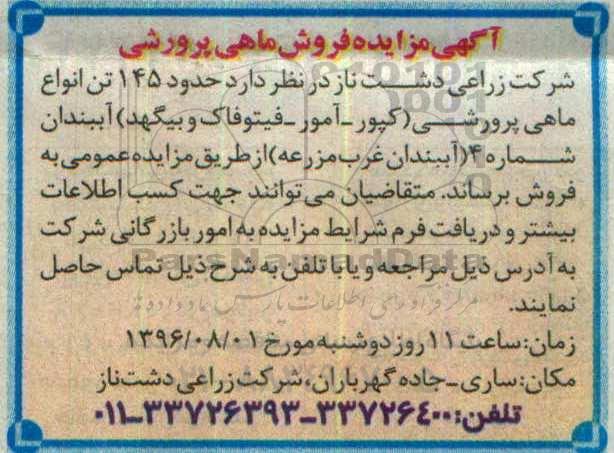 آگهی مزایده فروش ماهی پرورشی
شرکت زراعی دشت ناز در نظر دارد حدود ۱۴۵ تن انواع
ماهی پرورشی (کپور ـ آمور ـ فیتوفاک و بیگهد) آببندان
شماره ۴ (آببندان غرب مزرعه) از طریق مزایده عمومی به
فروش برساند. متقاضیان می توانند جهت کسب اطلاعات
بیشتر و دریافت فرم شرایط مزایده به امور بازرگانی شرکت
به آدرس ذیل مراجعه و یا با تلفن به شرح ذیل تماس حاصل
نمایند.
زمان: ساعت ۱۱ روز دوشنبه مورخ ۱۳۹۶/۰۸/۰۱
مکان: ساری ـ جاده گهرباران، شرکت زراعی دشت ناز
تلفن: ۳۳۷۲۶۴۰۰ـ۳۳۷۲۶۳۹۳ـ۰۱۱
ParsNamadData